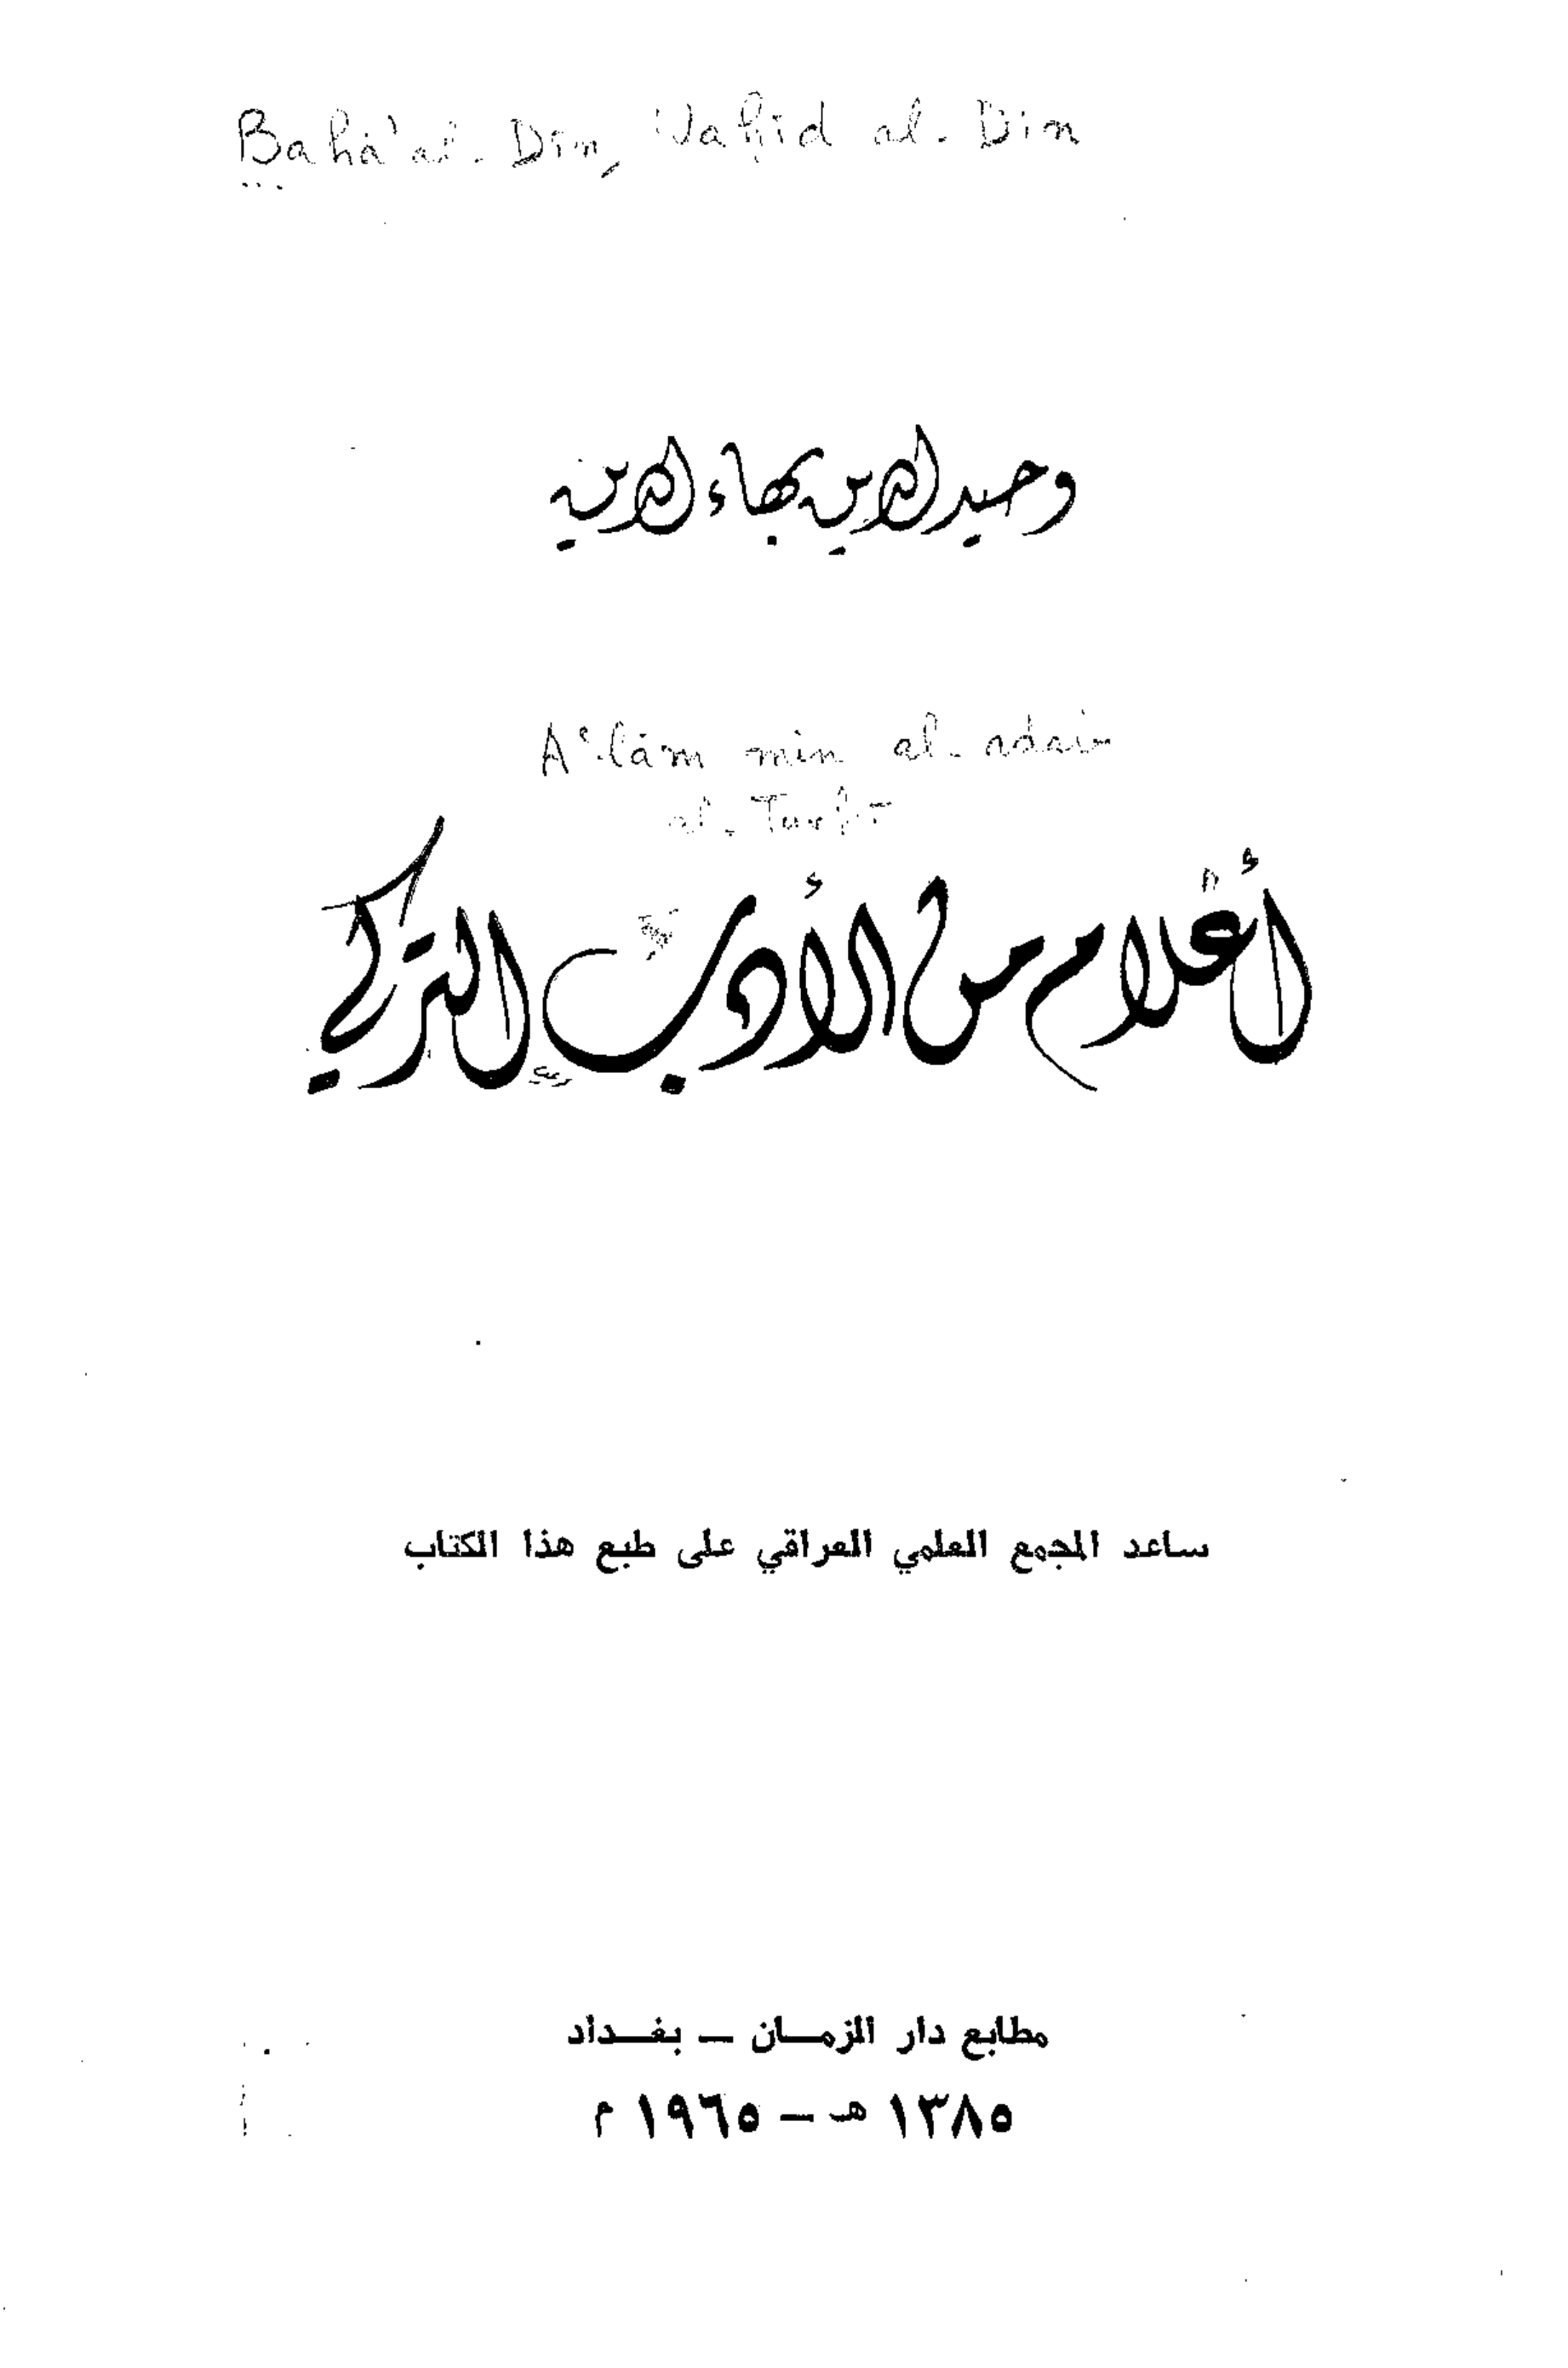 Bahā' al-Dīn, Waḥīd al-Dīn
وحيد الدين بهاء الدين
Aʿlām min al-adab
al-Turkī
أعلام من الأدب التركي
ساعد المجمع العلمي العراقي على طبع هذا الكتاب
مطابع دار الزمــان – بغــداد
١٣٨٥ هـ – ١٩٦٥ م